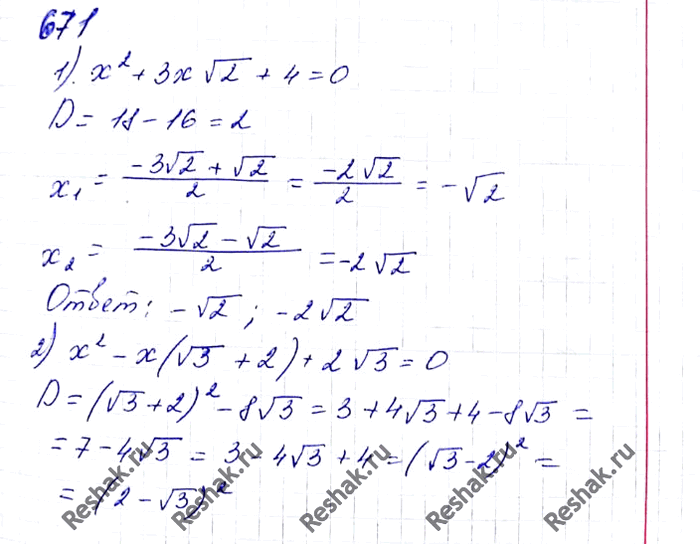 671
1). x² + 3x√2 + 4 = 0
D = 18 - 16 = 2
x₁ = (-3√2 + √2)/2 = (-2√2)/2 = -√2
x₂ = (-3√2 - √2)/2 = -2√2
Ответ: -√2 ; -2√2
2) x² - x(√3 + 2) + 2√3 = 0
D = (√3 + 2)² - 8√3 = 3 + 4√3 + 4 - 8√3 =
= 7 - 4√3 = 3 - 4√3 + 4 = (√3 - 2)² =
= (2 - √3)²
Reshak.ru Reshak.ru Reshak.ru Reshak.ru